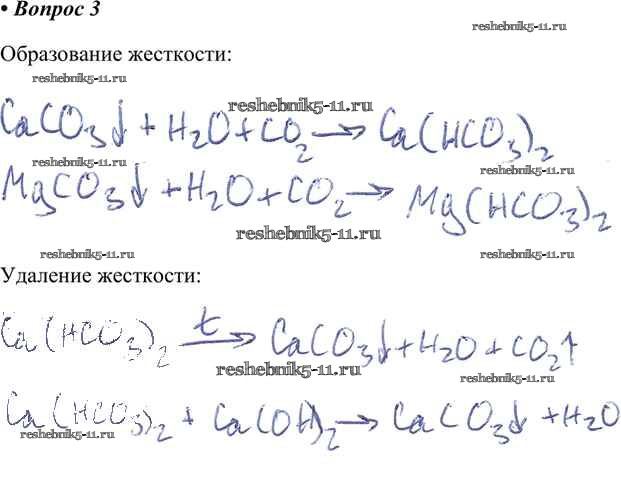 • Вопрос 3
reshebnik5-11.ru
Образование жесткости:
reshebnik5-11.ru
reshebnik5-11.ru
CaCO₃↓ + H₂O + CO₂ → Ca(HCO₃)₂
reshebnik5-11.ru
reshebnik5-11.ru
MgCO₃↓ + H₂O + CO₂ → Mg(HCO₃)₂
reshebnik5-11.ru
reshebnik5-11.ru
reshebnik5-11.ru
Удаление жесткости:
reshebnik5-11.ru
Ca(HCO₃)₂ t→ CaCO₃↓ + H₂O + CO₂↑
reshebnik5-11.ru
reshebnik5-11.ru
Ca(HCO₃)₂ + Ca(OH)₂ → CaCO₃↓ + H₂O
reshebnik5-11.ru
reshebnik5-11.ru